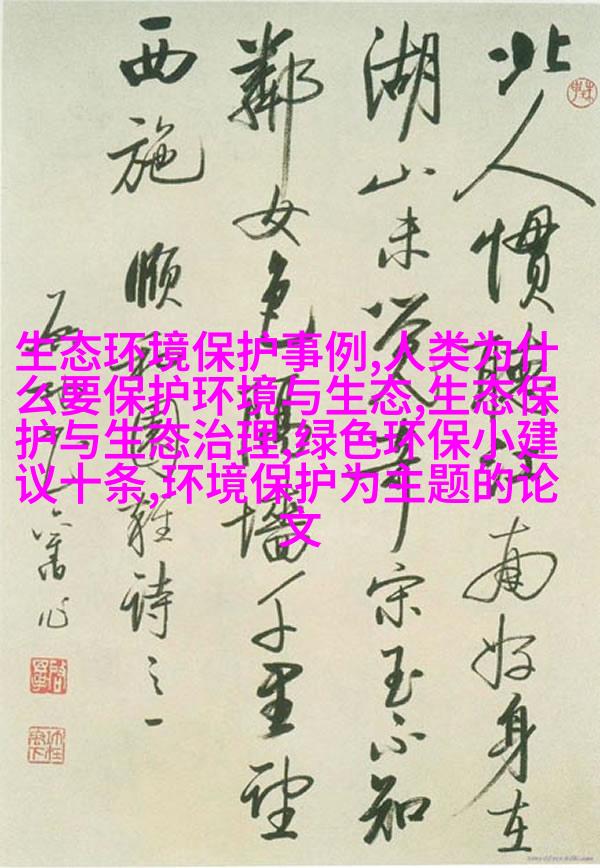 北人慣聽江南好身在
湖山未觉奇宋玉不知
鄰女色隔墙千里望
西施 颐和園雜詩之一
舊作
生态环境保护事例,人类为什
么要保护环境与生态,生态保
护与生态治理,绿色环保小建
议十条,环境保护为主题的论
文